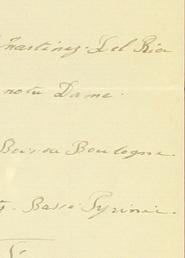 Martinez. Del Rio
notre Dame.
Bois de Boulogne.
Basse Pyrinie.